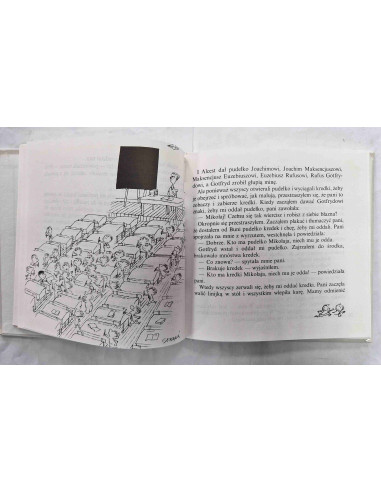 I Alcest dał pudełko Joachimowi, Joachim Maksencjuszowi,
Maksencjusz Euzebiuszowi, Euzebiusz Rufusowi, Rufus Gotfry-
dowi, a Gotfryd zrobił głupią minę.
Ale ponieważ wszyscy otwierali pudełko i wyciągali kredki, żeby
je obejrzeć i spróbować, jak malują, przestraszyłem się, że pani to
zobaczy i zabierze kredki. Kiedy zacząłem dawać Gotfrydowi
znaki, żeby mi oddał pudełko, pani zawołała:
— Mikołaj! Czemu się tak wiercisz i robisz z siebie błazna?
Okropnie się przestraszyłem. Zacząłem płakać i tłumaczyć pani,
że dostałem od Buni pudełko kredek i chcę, żeby mi oddali. Pani
spojrzała na mnie z wyrzutem, westchnęła i powiedziała:
— Dobrze. Kto ma pudełko Mikołaja, niech mu je odda.
Gotfryd wstał i oddał mi pudełko. Zajrzałem do środka,
brakowało mnóstwa kredek.
— Co znowu? — spytała mnie pani.
— Brakuje kredek — wyjaśniłem.
— Kto ma kredki Mikołaja, niech mu je odda — powiedziała
pani.
Wtedy wszyscy zerwali się, żeby mi oddać kredki. Pani zaczęła
walić linijką w stół i wszystkim wlepiła karę. Mamy odmieniać